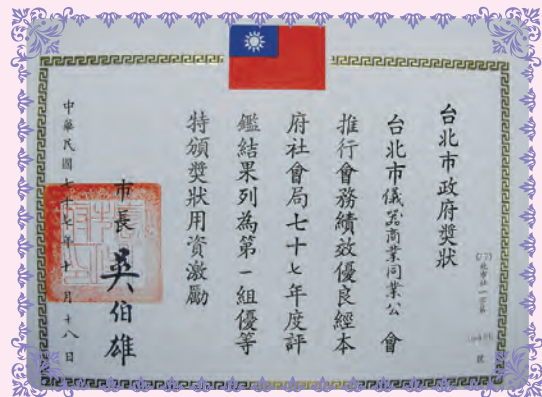 台北市政府獎狀
(77)北市社一字第
號
台北市儀器商業同業公會
推行會務績效優良經本
府社會局七十七年度評
鑑結果列為第一組優等
特頒獎狀用資激勵
市長 吳伯雄
中華民國七十七年十月十八日